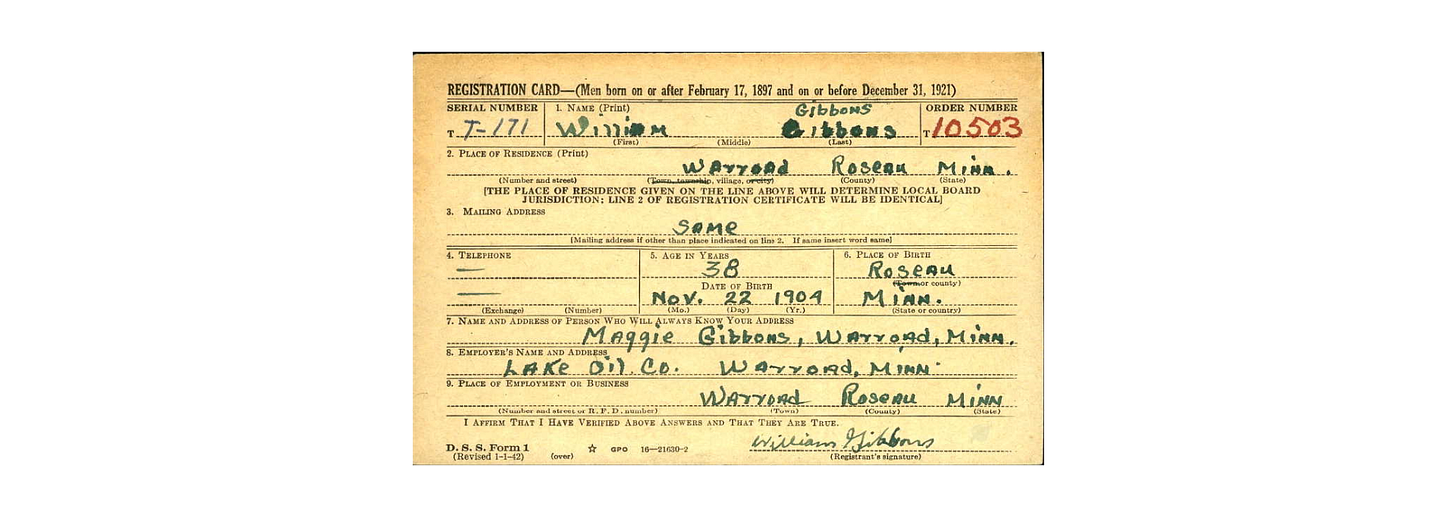 REGISTRATION CARD—(Men born on or after February 17, 1897 and on or before December 31, 1921)
SERIAL NUMBER 1. NAME (Print) Gibbons ORDER NUMBER
T T-171 William Gibbons T 10503
(First) (Middle) (Last)
2. PLACE OF RESIDENCE (Print)
Warroad Roseau Minn.
(Number and street) (Town, township, village, or city) (County) (State)
[THE PLACE OF RESIDENCE GIVEN ON THE LINE ABOVE WILL DETERMINE LOCAL BOARD
JURISDICTION; LINE 2 OF REGISTRATION CERTIFICATE WILL BE IDENTICAL]
3. MAILING ADDRESS
Same
[Mailing address if other than place indicated on line 2. If same insert word same]
4. TELEPHONE 5. AGE IN YEARS 6. PLACE OF BIRTH
— 38 Roseau
DATE OF BIRTH (Town or county)
— Nov. 22 1904 Minn.
(Exchange) (Number) (Mo.) (Day) (Yr.) (State or country)
7. NAME AND ADDRESS OF PERSON WHO WILL ALWAYS KNOW YOUR ADDRESS
Maggie Gibbons, Warroad, Minn.
8. EMPLOYER'S NAME AND ADDRESS
Lake Oil. Co. Warroad, Minn.
9. PLACE OF EMPLOYMENT OR BUSINESS
Warroad Roseau Minn
(Number and street or R. F. D. number) (Town) (County) (State)
I AFFIRM THAT I HAVE VERIFIED ABOVE ANSWERS AND THAT THEY ARE TRUE.
William Gibbons
D. S. S. Form 1
(Revised 1-1-42) (over) ☆ GPO 16—21630-2 (Registrant's signature)